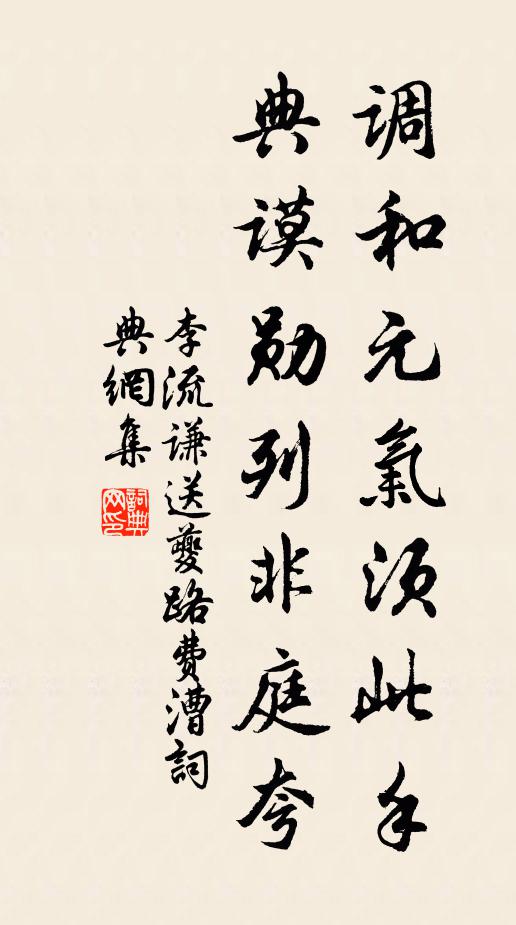 调和元氣须此手
典谟勋列非庭夸
李流谦送夔路费漕詞
典網集
詞典网印